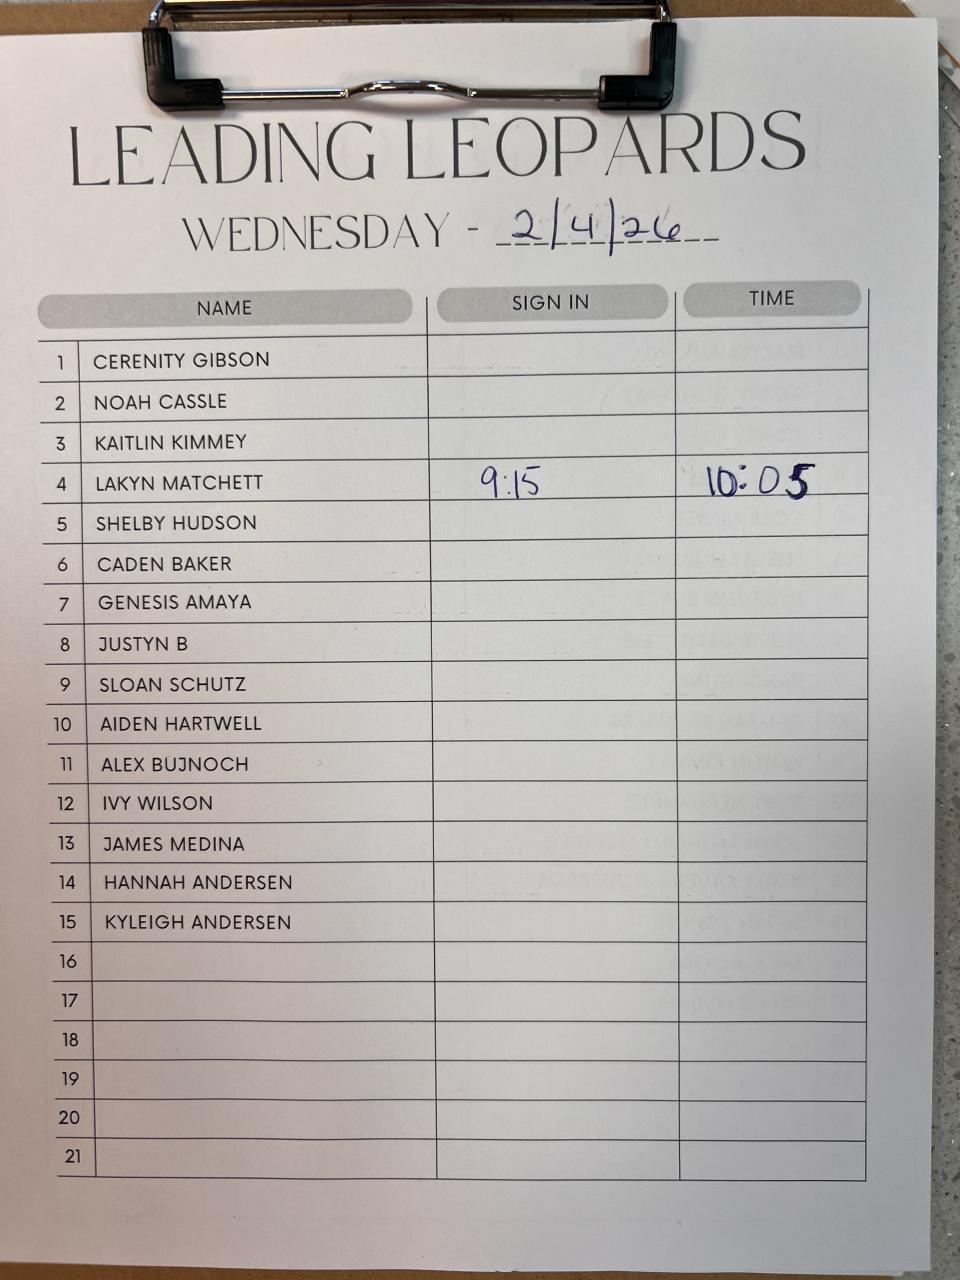 LEADING LEOPARDS
WEDNESDAY - 2/4/26
NAME SIGN IN TIME
1 CERENITY GIBSON
2 NOAH CASSLE
3 KAITLIN KIMMEY
4 LAKYN MATCHETT 9:15 10:05
5 SHELBY HUDSON
6 CADEN BAKER
7 GENESIS AMAYA
8 JUSTYN B
9 SLOAN SCHUTZ
10 AIDEN HARTWELL
11 ALEX BUJNOCH
12 IVY WILSON
13 JAMES MEDINA
14 HANNAH ANDERSEN
15 KYLEIGH ANDERSEN
16
17
18
19
20
21